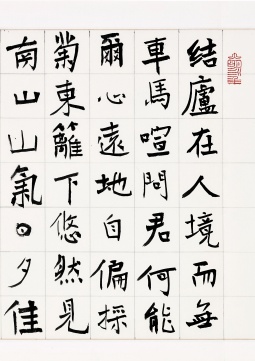 结廬在人境而無
車馬喧問君何能
爾心遠地自偏採
菊東籬下悠然見
南山山氣日夕佳